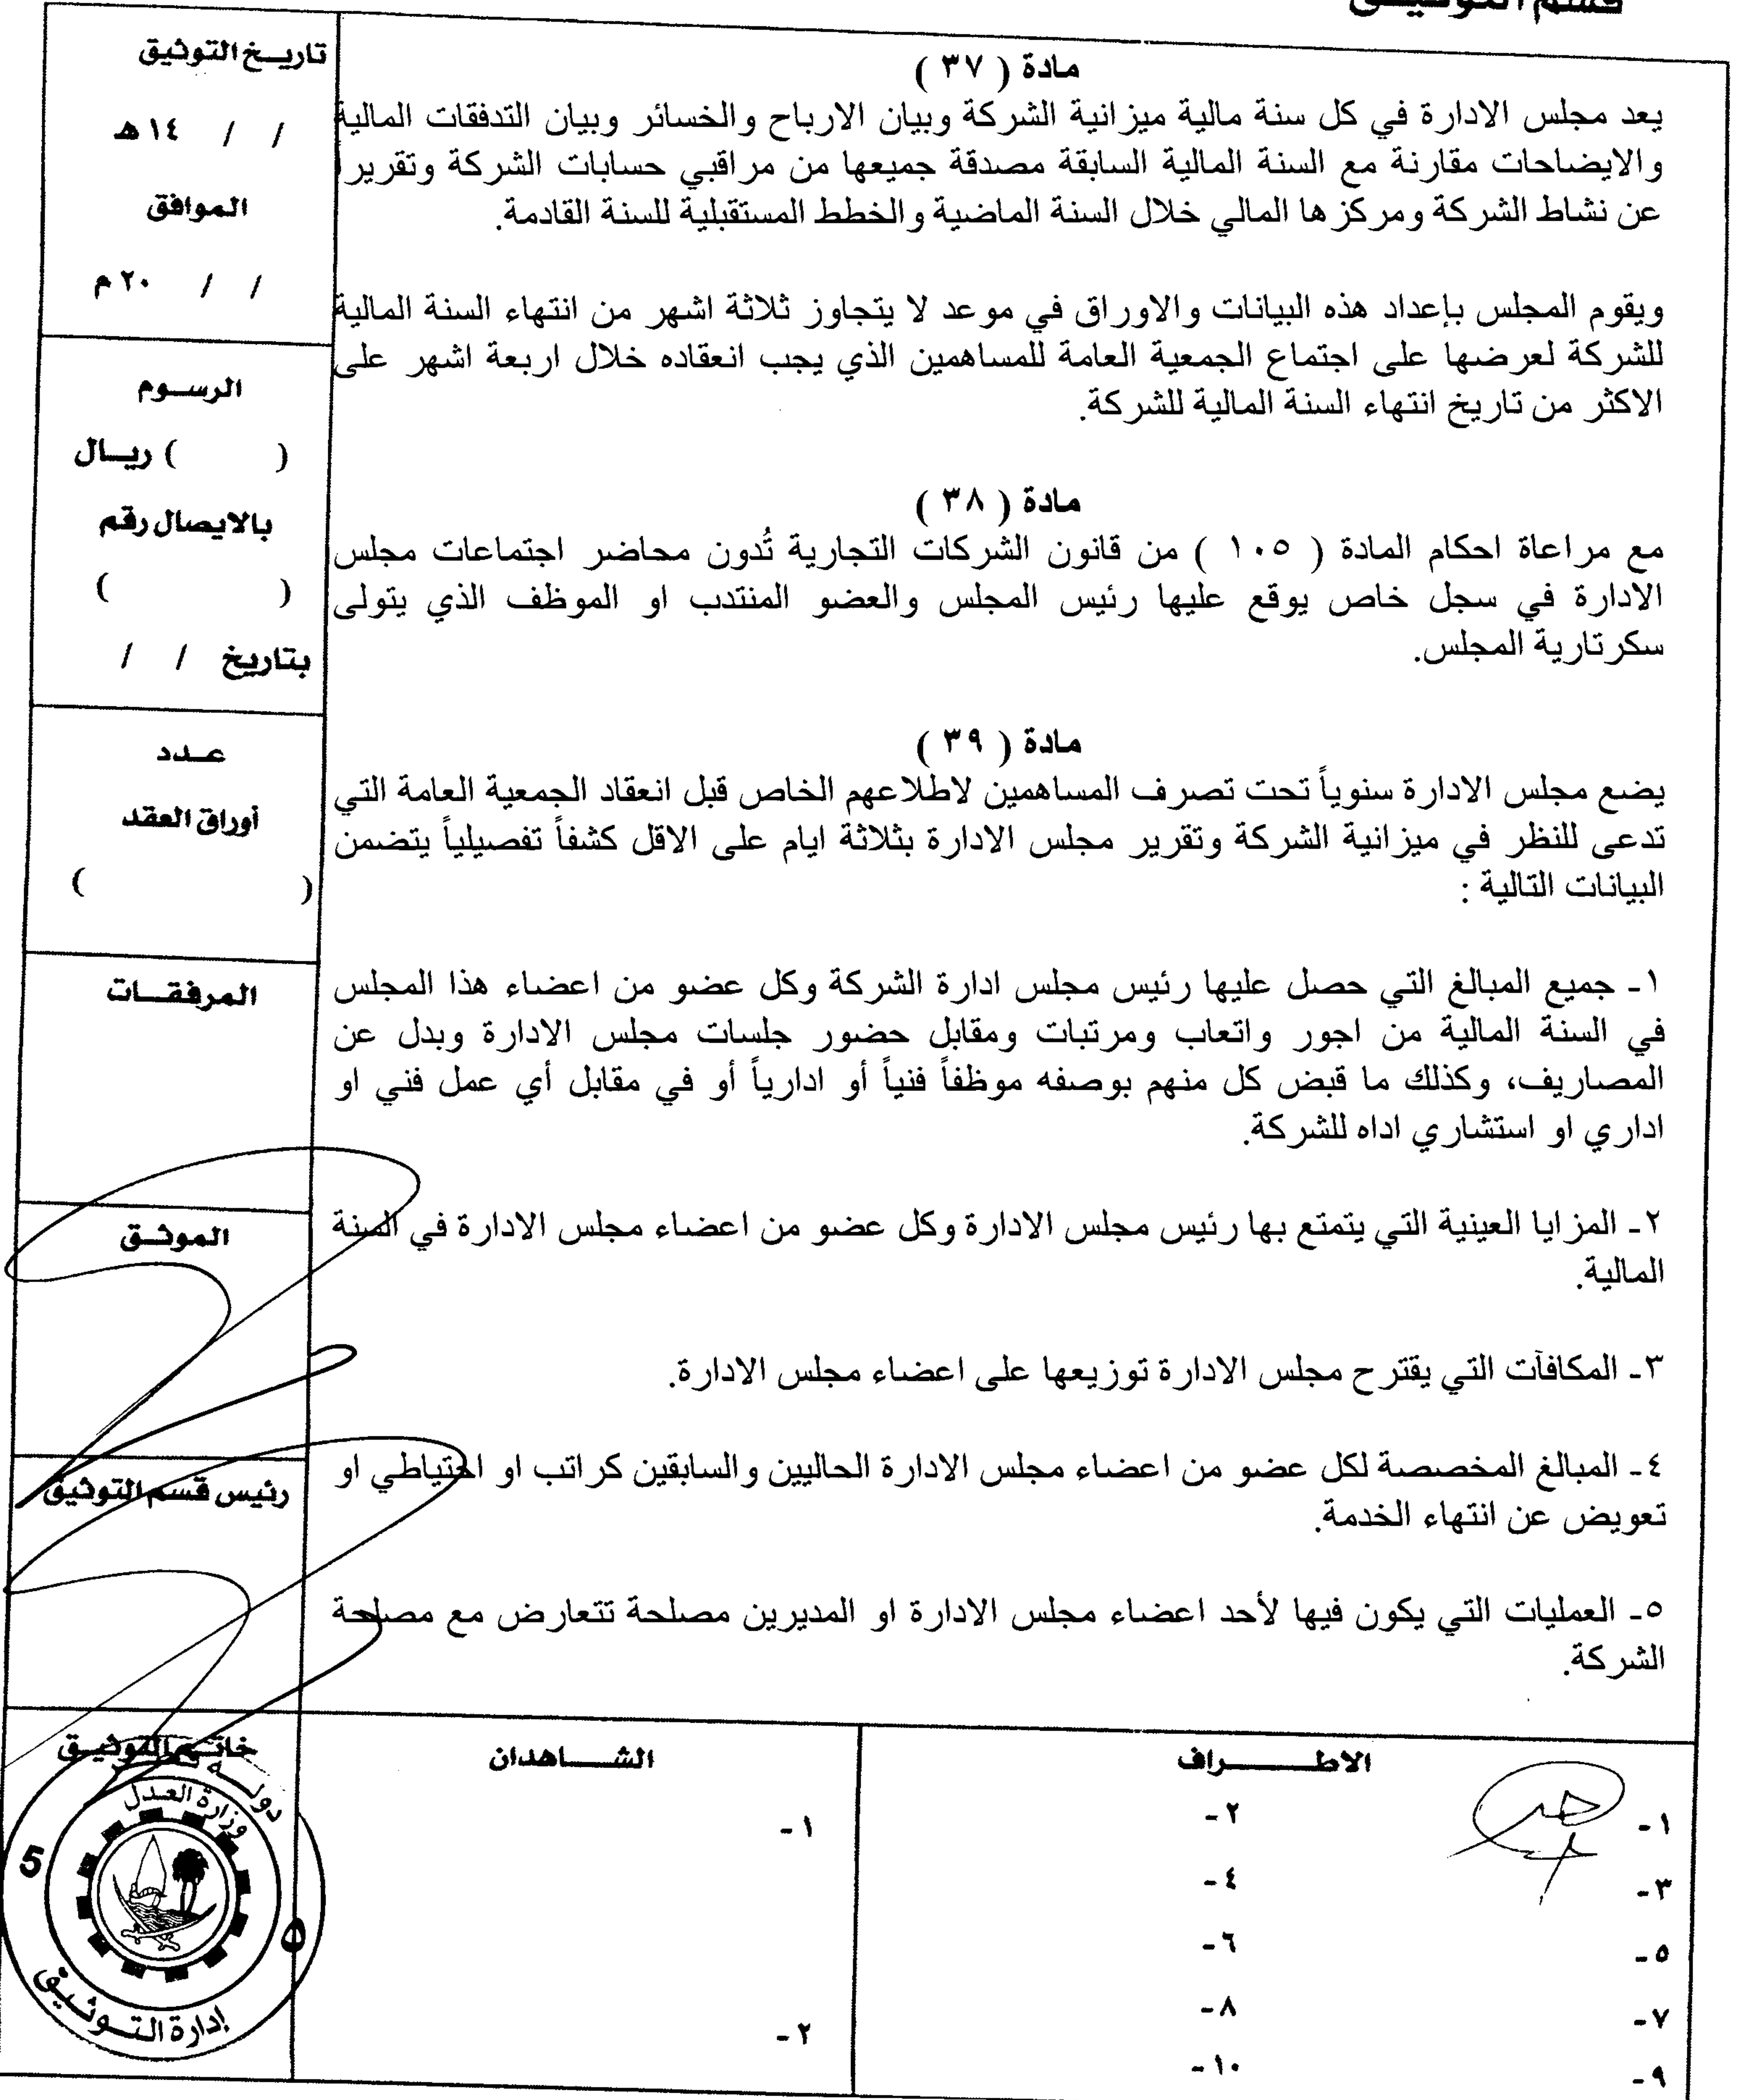 قسم التوثيق
مادة ( ٣٧ )
يعد مجلس الادارة في كل سنة مالية ميزانية الشركة وبيان الارباح والخسائر وبيان التدفقات المالية
والايضاحات مقارنة مع السنة المالية السابقة مصدقة جميعها من مراقبي حسابات الشركة وتقريراً
عن نشاط الشركة ومركزها المالي خلال السنة الماضية والخطط المستقبلية للسنة القادمة.
ويقوم المجلس بإعداد هذه البيانات والاوراق في موعد لا يتجاوز ثلاثة اشهر من انتهاء السنة المالية
للشركة لعرضها على اجتماع الجمعية العامة للمساهمين الذي يجب انعقاده خلال اربعة اشهر على
الاكثر من تاريخ انتهاء السنة المالية للشركة.
مادة ( ٣٨ )
مع مراعاة احكام المادة ( ١٠٥ ) من قانون الشركات التجارية تُدون محاضر اجتماعات مجلس
الادارة في سجل خاص يوقع عليها رئيس المجلس والعضو المنتدب او الموظف الذي يتولى
سكرتارية المجلس.
مادة ( ٣٩ )
يضع مجلس الادارة سنوياً تحت تصرف المساهمين لاطلاعهم الخاص قبل انعقاد الجمعية العامة التي
تدعى للنظر في ميزانية الشركة وتقرير مجلس الادارة بثلاثة ايام على الاقل كشفاً تفصيلياً يتضمن
البيانات التالية :
١- جميع المبالغ التي حصل عليها رئيس مجلس ادارة الشركة وكل عضو من اعضاء هذا المجلس
في السنة المالية من اجور واتعاب ومرتبات ومقابل حضور جلسات مجلس الادارة وبدل عن
المصاريف، وكذلك ما قبض كل منهم بوصفه موظفاً فنياً أو ادارياً أو في مقابل أي عمل فني او
اداري او استشاري اداه للشركة.
٢- المزايا العينية التي يتمتع بها رئيس مجلس الادارة وكل عضو من اعضاء مجلس الادارة في السنة
المالية.
٣- المكافآت التي يقترح مجلس الادارة توزيعها على اعضاء مجلس الادارة.
٤- المبالغ المخصصة لكل عضو من اعضاء مجلس الادارة الحاليين والسابقين كراتب او احتياطي او
تعويض عن انتهاء الخدمة.
٥- العمليات التي يكون فيها لأحد اعضاء مجلس الادارة او المديرين مصلحة تتعارض مع مصلحة
الشركة.
تاريخ التوثيق
/ / ١٤هـ
الموافق
/ / ٢٠م
الرسوم
( ) ريال
بالايصال رقم
( )
بتاريخ / /
عدد
أوراق العقد
( )
المرفقات
الموثق
رئيس قسم التوثيق
الاطراف
١-
٢-
٣-
٤-
٥-
٦-
٧-
٨-
٩-
١٠-
الشاهدان
١-
٢-
خاتم التوثيق
دولة قطر
وزارة العدل
5
٥
إدارة التوثيق